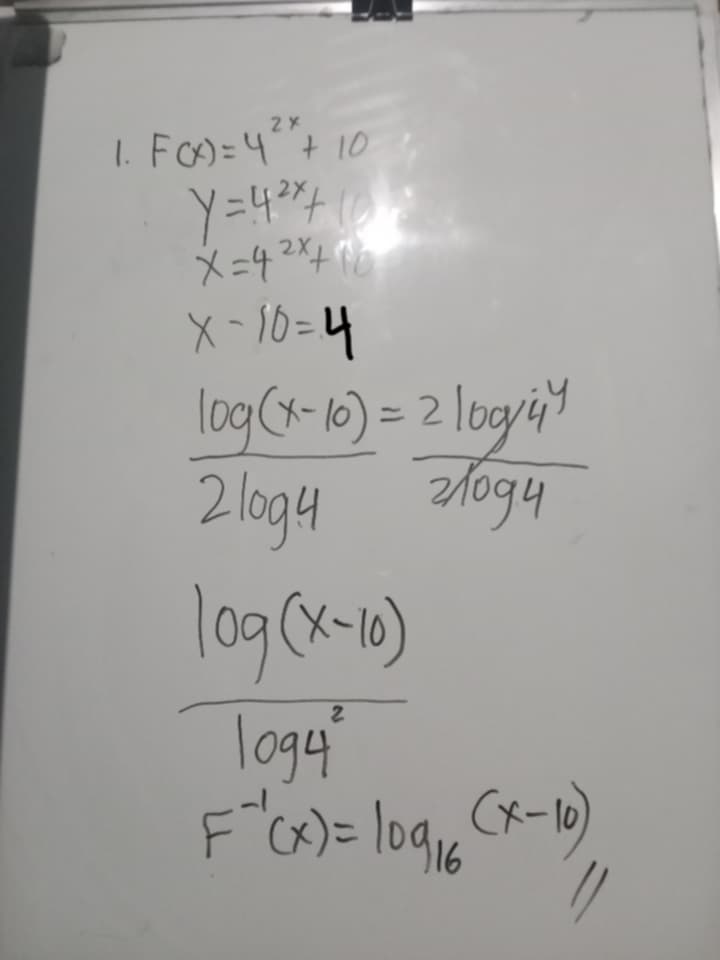 1. F(x)=4^2x + 10
y=4^2x+10
x=4^2x+10
x-10=4
log(x-10) = 2log4^y
2log4 2log4
log(x-10)
log4^2
F^-1(x)=log_16 (x-10)//